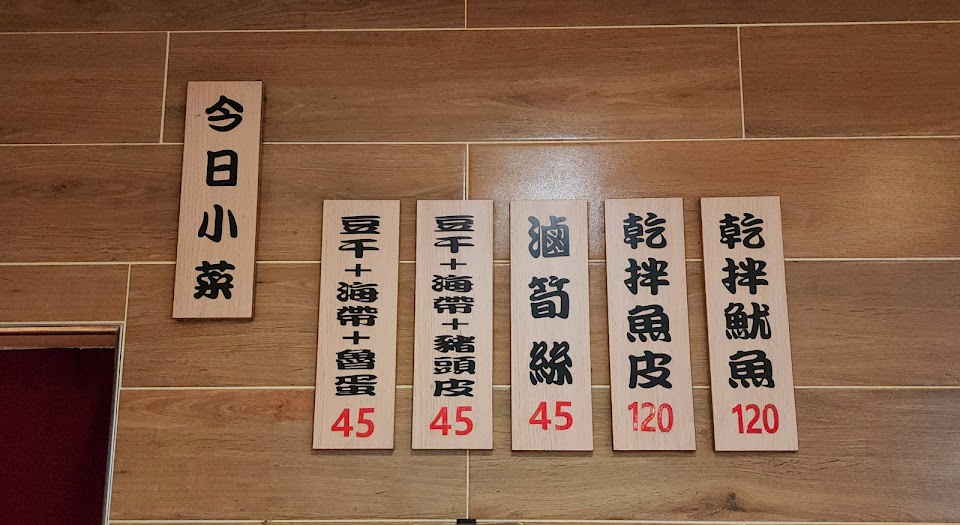 今日小菜
豆干+海帶+魯蛋
45
豆干+海帶+豬頭皮
45
滷筍絲
45
乾拌魚皮
120
乾拌魷魚
120